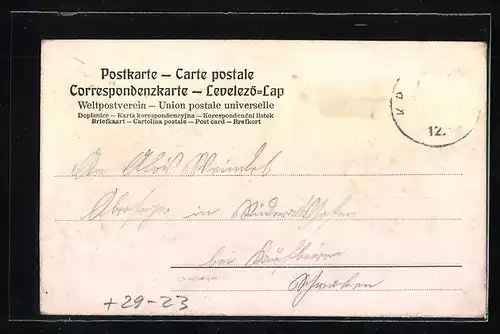 Postkarte — Carte postale
Correspondenzkarte — Levelező=Lap
Weltpostverein — Union postale universelle
Doplsnice — Karta korespondencyjna — Korespondenční listek
Briefkaart — Cartolina postale — Post card — Brefkort
K D
12.
An Alois
in
bei Kaufbeuren
Schwaben
+29-23